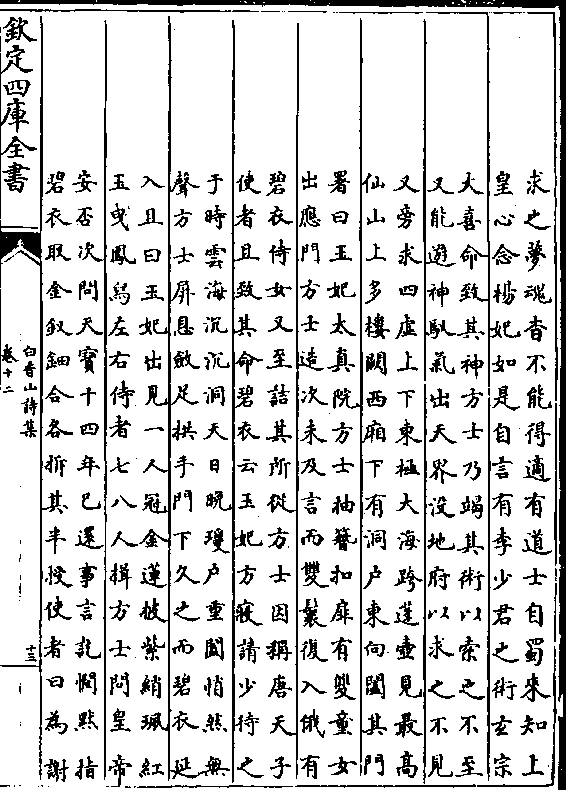 求之夢魂杳不能得適有道士自蜀來知上
皇心念楊妃如是自言有李少君之術玄宗
大喜命致其神方士乃竭其術以索之不至
又能遊神馭氣出天界没地府以求之不見
又旁求四虚上下東極大海跨蓬壺見最高
仙山上多樓闕西廂下有洞户東向闔其門
署曰玉妃太真院方士抽簪扣扉有雙童女
出應門方士造次未及言而雙鬟復入俄有
碧衣侍女又至詰其所從方士因稱唐天子
使者且致其命碧衣云玉妃方寢請少待之
于時雲海沉沉洞天日晚瓊户重闔悄然無
聲方士屏息斂足拱手門下久之而碧衣延
入且曰玉妃出見一人冠金蓮披紫綃珮紅
玉曳鳳舄左右侍者七八人揖方士問皇帝
安否次問天寶十四年已還事言訖憫黙指
碧衣取金釵鈿合各拆其半授使者曰為謝
欽定四庫全書
白香山詩集
卷十二
十三